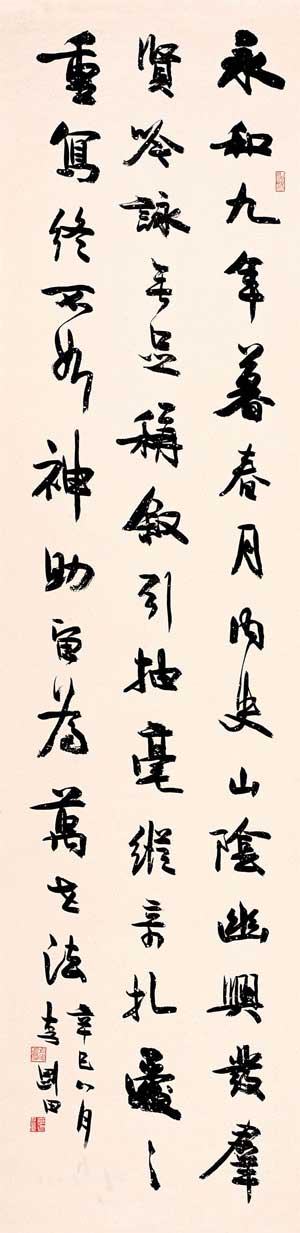 永和九年暮春月內史山陰幽興發羣
賢吟詠無足稱敘引抽毫縱奇札愛之
重寫終不如神助留為萬世法
辛巳八月
李剛田